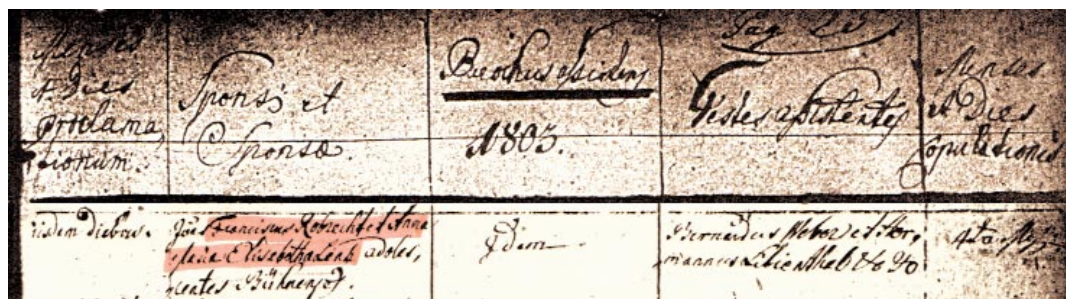 Menses
et Dies
proclama,
tionum.
Sponsi et
Sponsæ.
Parochus assistens
1803.
Pag
Testes assistentes
Menses
et Dies
Copulationis
iisdem diebus.
Joes Franciscus Robrecht et Anna
Maria Elisabetha adoles,
centes Bühnenses.
Idem
Bernardus et Her,
mannus
4ta